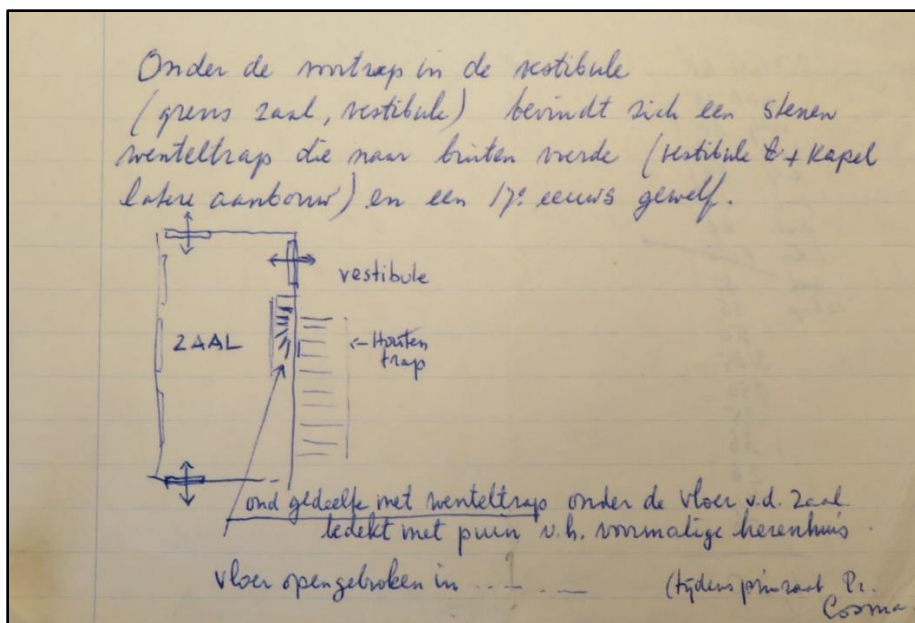 Onder de voortrap in de vestibule
(grens zaal, vestibule) bevindt zich een stenen
wenteltrap die naar buiten voerde (vestibule + kapel
latere aanbouw) en een 17e eeuws gewelf.
vestibule
ZAAL
← Houten
trap
oud gedeelte met wenteltrap onder de vloer v.d. zaal
bedekt met puin v.h. voormalige herenhuis.
vloer opengebroken in ... ? ...
(tijdens prioraat Pr.
Cosma